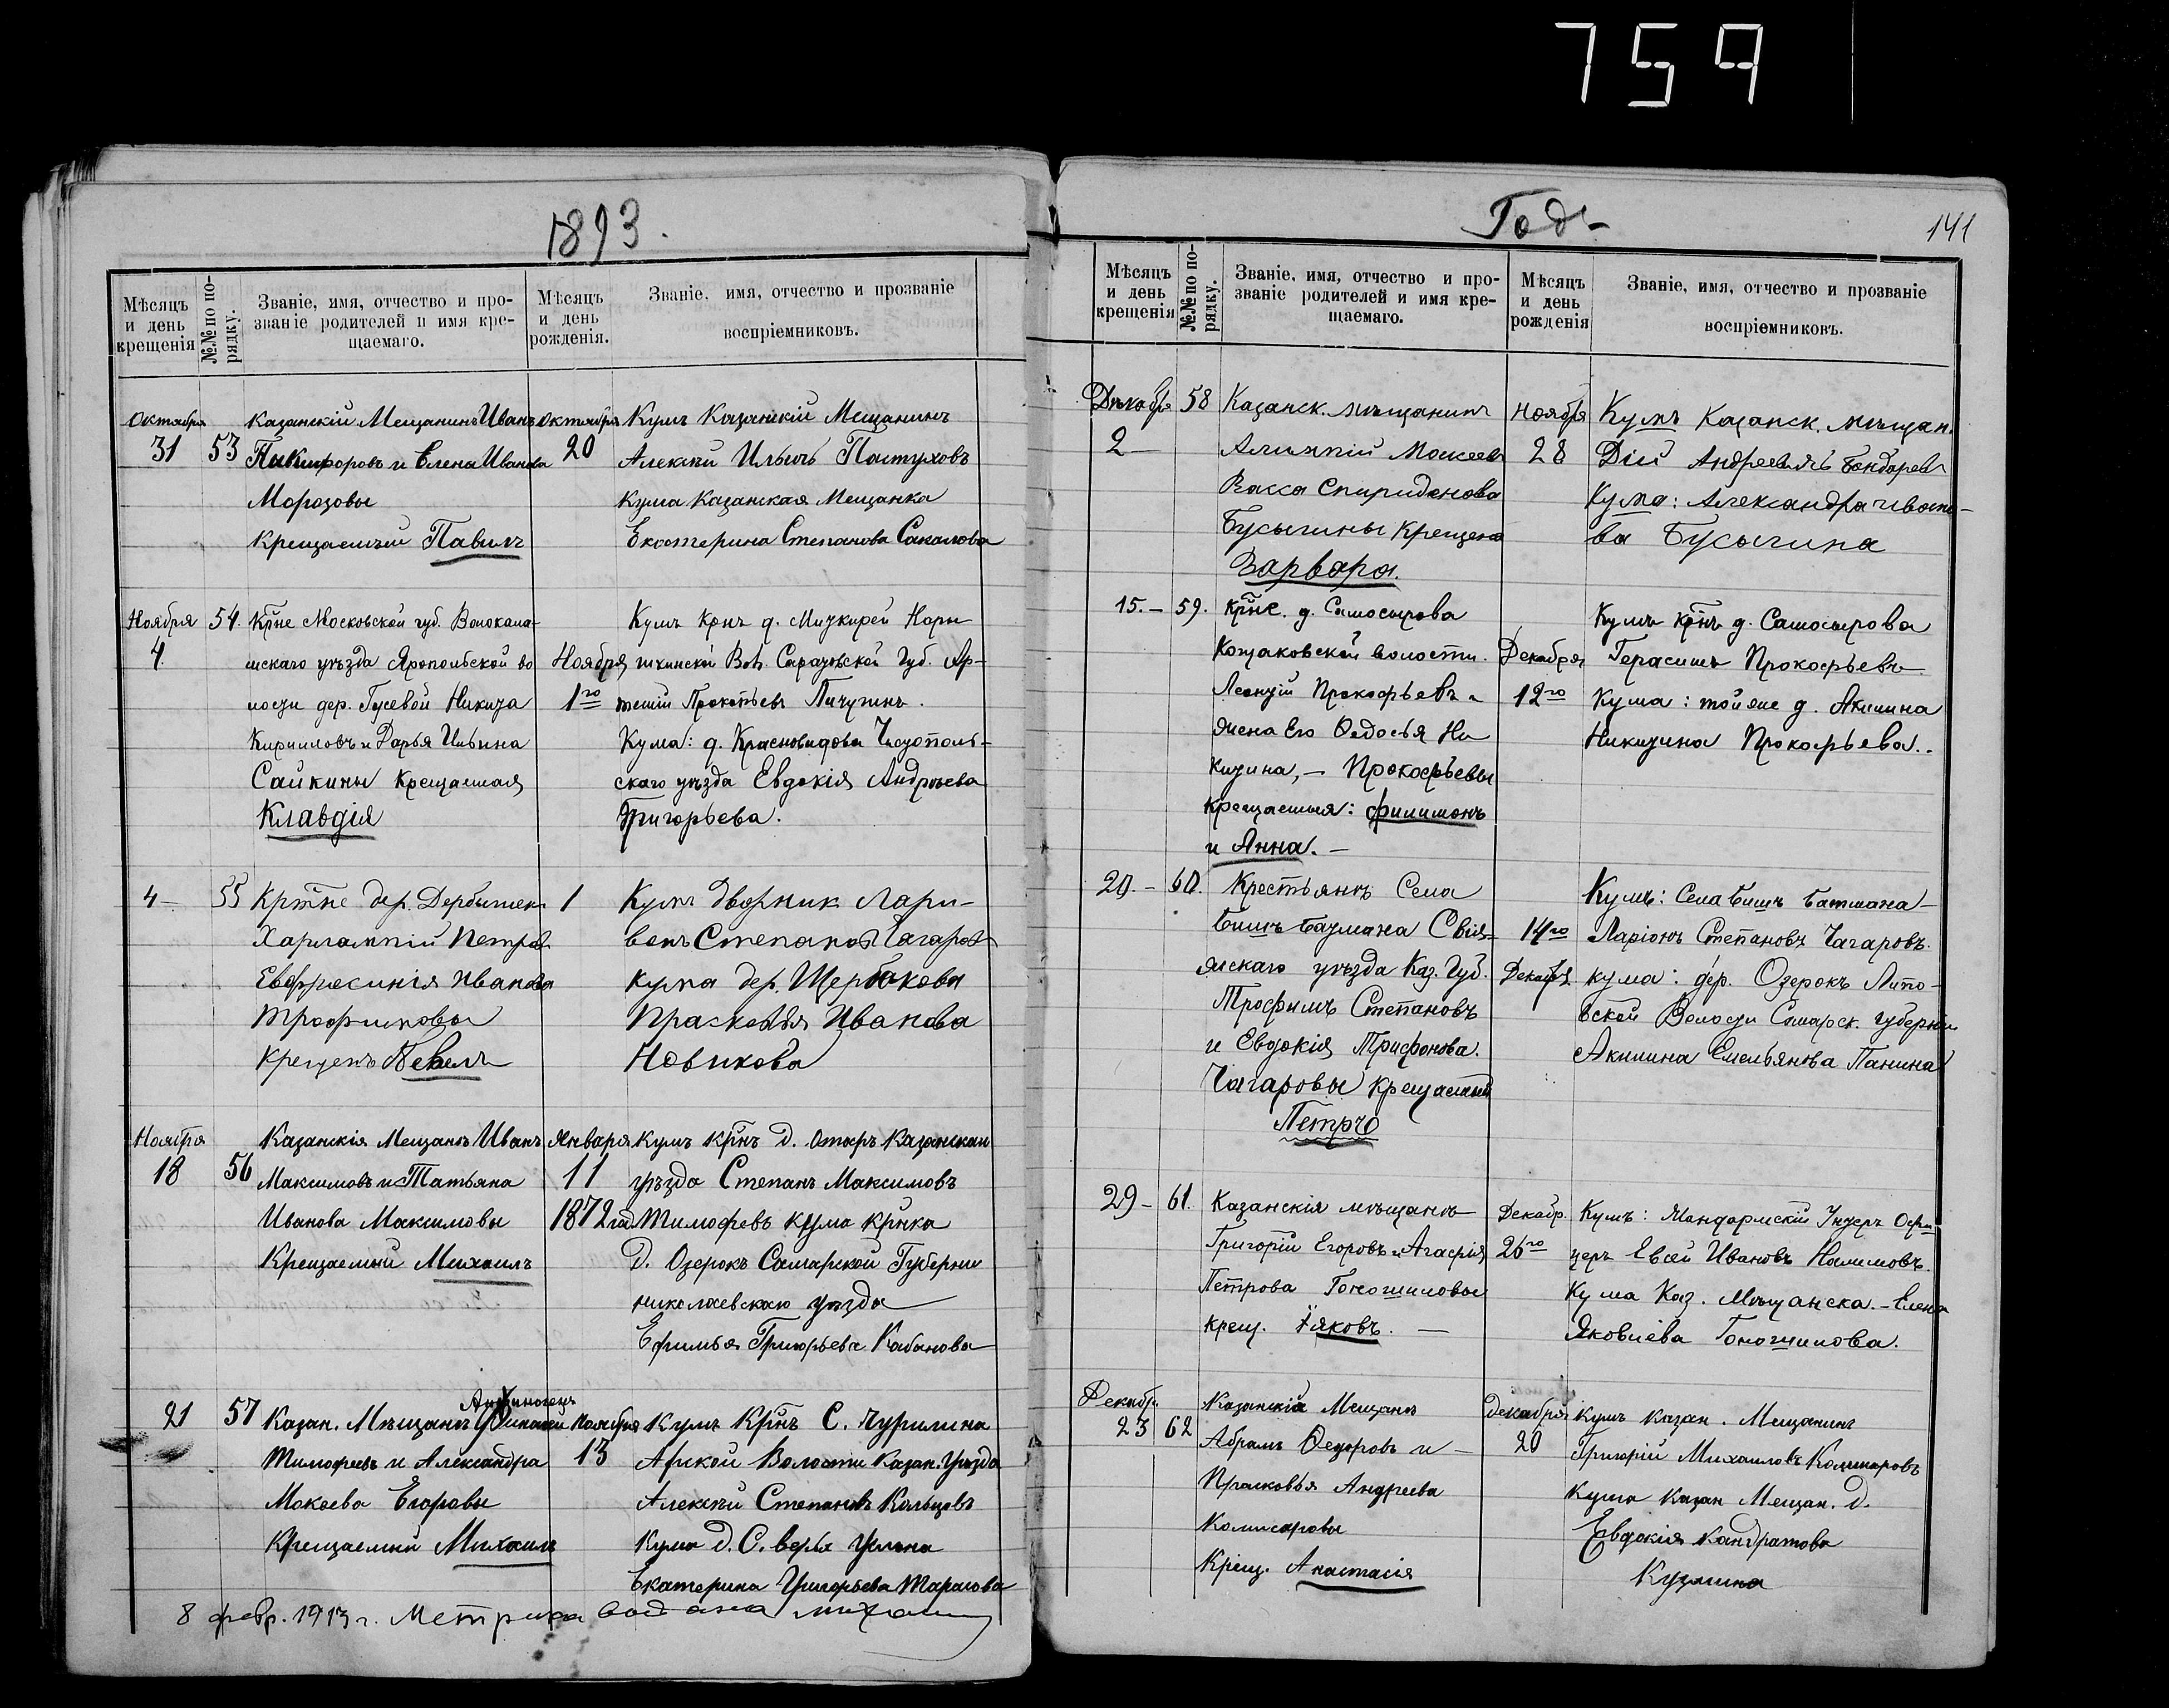 759
1893.
Мѣсяцъ и день крещенія
№№ по порядку.
Званіе, имя, отчество и прозваніе родителей и имя крещаемаго.
Мѣсяцъ и день рожденія.
Званіе, имя, отчество и прозваніе воспріемниковъ.
Октября 31
53
Казанскій Мещанинъ Иванъ
Никифоровъ и Елена Иванова
Морозовы
Крещаемый Павилъ
Октября 20
Кумъ Казанскій Мещанинъ
Алексѣй Ильичъ Пастуховъ
Кума Казанская Мещанка
Екатерина Степанова Сакалова
Ноября 4.
54.
Крⷭ҇не Московской губ. Волокала-
мскаго уѣзда Яропольской во
лости дер. Гусевой Никита
Кирилловъ и Дарья Ильина
Сайкины Крещаемая
Клавдія
Ноября 1го
Кумъ Крнъ д. Мизкирей Нары
шкинской Вол. Саратовской Губ. Ар-
темій Прокопьевъ Пичугинъ.
Кума: д. Красновидова Чистополь-
скаго уѣзда Евдокія Андрѣева
Григорьева.
4-
55
Крⷭ҇тне дер. Дербышек
Харлампій Петров
Евфросинія Иванова
Трофимовы
Крещенъ Павелъ
1
Кумъ дворник Лари-
вонъ Степанов Чагаров
Кума дер. Щербакова
Прасковья Иванова
Новикова
Ноября 18
56
Казанскія Мещане Иванъ
Максимовъ и Татьяна
Иванова Максимовы
Крещаемый Михаилъ
Января 11
1872 год
Кумъ Крнъ д. Отаръ Казанскаи
уѣзда Степанъ Максимовъ
Тимофеевъ Кума Крнка
д. Озерокъ Самарской Губерни
николаевскаю уѣзда
Ефимья Григорьева Кабанова
21
57
Анфиногенъ
Казан. Мѣщане
Тимофеевъ и Александра
Мокеева Егоровы
Крещаемый Михаилъ
Ноября 13
Кумъ Крⷭ҇нъ С. Чурилина
Арской Волости Казан. Уѣзда
Алексѣй Степановъ Кальцовъ
Кума д. С. верья Услона
Екатерина Григорьева Тарасова
8 февр. 1913 г. Метрика выдана
Годъ
141
Мѣсяцъ и день крещенія
№№ по порядку.
Званіе, имя, отчество и прозваніе родителей и имя крещаемаго.
Мѣсяцъ и день рожденія
Званіе, имя, отчество и прозваніе воспріемниковъ.
Декабря 2-
58
Казанск. мѣщанинъ
Алимпій Мокеевъ
Васса Спиридонова
Бусыгины Крещена
Варвара.
Ноября 28
Кумъ Казанск. мѣщан.
Дій Андреевичъ Бондарев
Кума: Александра Ивано-
ва Бусыгина
15.-
59.
Крⷭ҇не. д. Самосырова
Кощаковской волости.
Леонтій Прокофьевъ и
жена Его Федосья Ни
китина,- Прокофьевы
крещаемыя: Филимонъ
и Анна.-
Декабря 12го
Кумъ Крⷭ҇нъ д. Самосырова
Герасимъ Прокофьевъ
Кума: той же д. Акилина
Никитина Прокофьева..
20.-
60.
Крестьянъ Села
Бишъ Батмана Свія-
жскаго уѣзда Каз. Губ.
Трофимъ Степановъ
и Евдокія Трифонова.
Чагаровы Крещаемый
Петръ
14го Декабря
Кумъ: Села Бишъ Батмана-
Ларіонъ Степановъ Чагаровъ.
кума: дер. Озерокъ Липо-
вской Волости Самарск. Губерніи
Акилина Емельянова Панина
29-
61.
Казанскія мѣщане
Григорій Егоровъ и Агафія
Петрова Гоношиловы
крещ. Іяковъ.-
Декабр. 26го
Кумъ: Жандармскій Унтеръ Офи
церъ Евсей Ивановъ Налимовъ.
Кума Каз. Мѣщанска.- Елена
Яковлева Гоношилова.
Декабр. 23
62
Казанскіа Мещане
Абрамъ Федоровъ и -
Прасковья Андреева
Комисаровы
Крещ. Анастасія
Декабря 20
Кумъ Казан. Мещанинъ
Григорій Михаиловъ Комисаровъ
Кума Казан Мещан. д.
Евдокія Кандратова
Кузмина